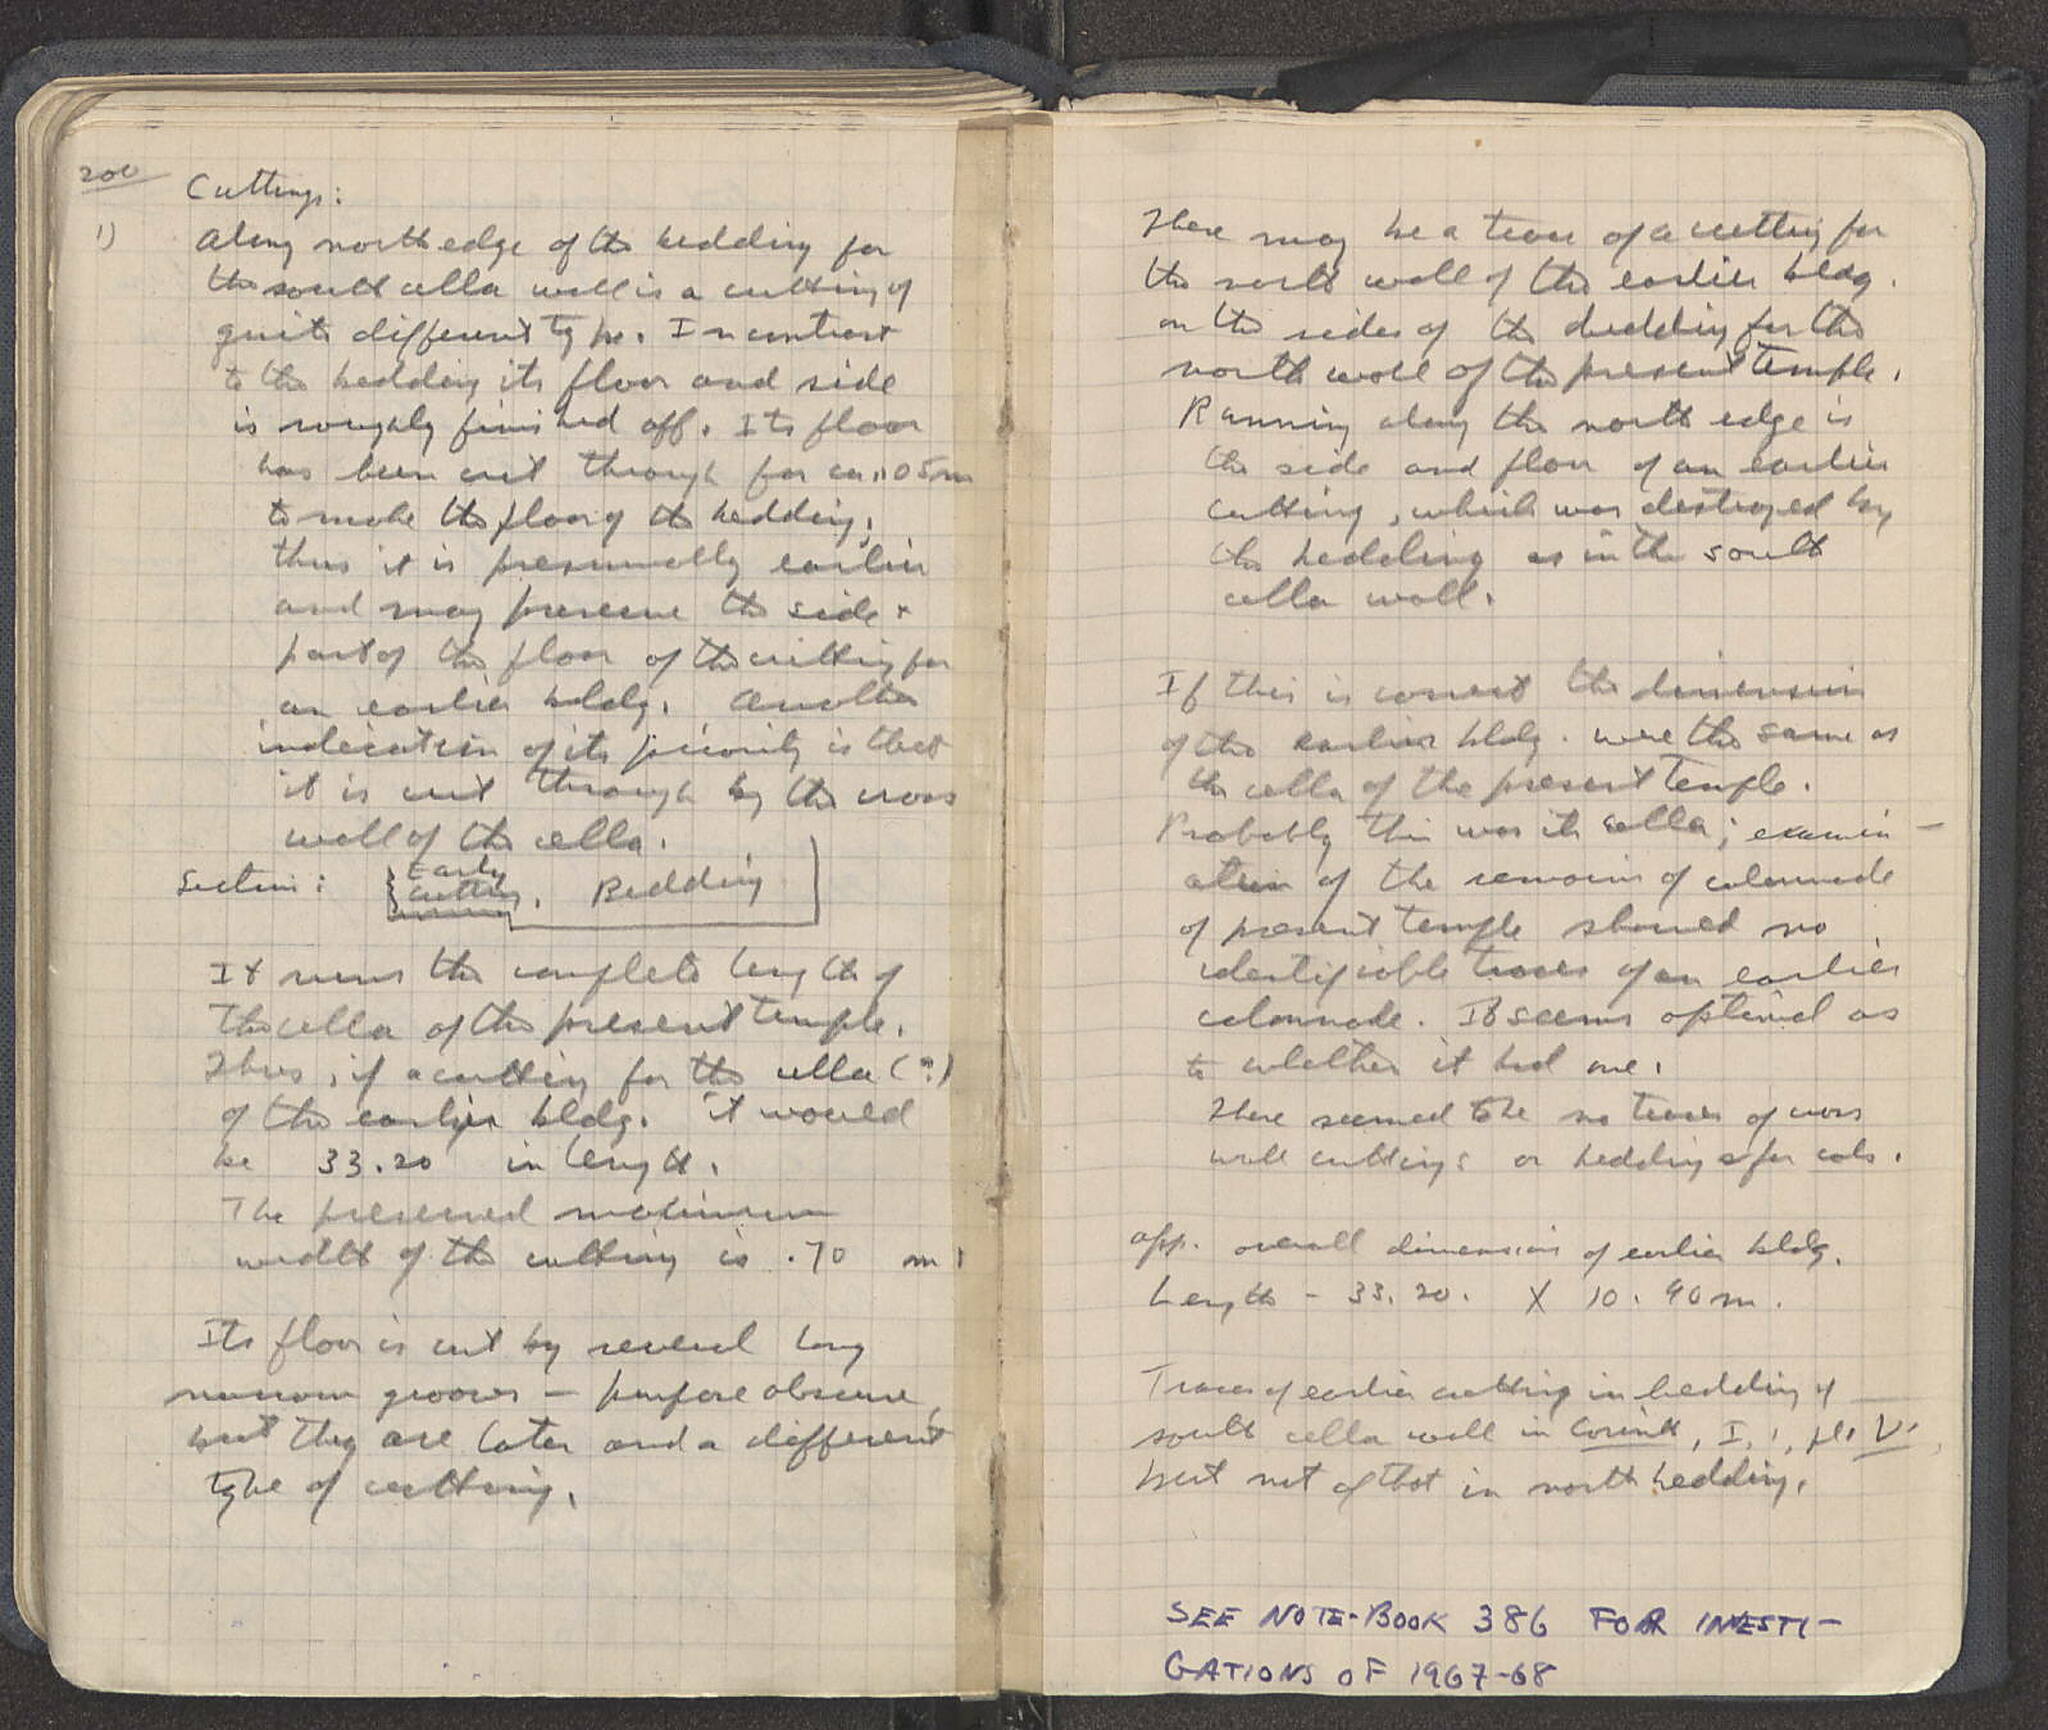 200
Cuttings:
1) Along north edge of the bedding for
the south cella wall is a cutting of
quite different type. In contrast
to the bedding its floor and side
is roughly finished off. Its floor
has been cut through for ca. .05m
to make the floor of the bedding;
thus it is presumably earlier
and may preserve the side +
part of the floor of the cutting for
an earlier bldg. Another
indication of its priority is that
it is cut through by the cross
wall of the cella.
Section: Early
cutting. Bedding
It runs the complete length of
the cella of the present temple.
Thus, if a cutting for the cella (?)
of the earlier bldg. it would
be 33.20 in length.
The preserved maximum
width of the cutting is .70 m.
Its floor is cut by several long
narrow grooves - purpose obscure,
but they are later and a different
type of cutting.
There may be a trace of a cutting for
the north wall of the earlier bldg.
on the sides of the bedding for the
north wall of the present temple.
Running along the north edge is
the side and floor of an earlier
cutting, which was destroyed by
the bedding as in the south
cella wall.
If this is correct the dimension
of the earlier bldg. were the same as
the cella of the present temple.
Probably this was its cella; examin-
ation of the remains of colonnade
of present temple showed no
identifiable traces of an earlier
colonnade. It seems optional as
to whether it had one.
There seemed to be no traces of cross
wall cuttings or beddings for cols.
app. overall dimensions of earlier bldg.
Length - 33.20. X 10.90m.
Traces of earlier cutting in bedding of
south cella wall in Corinth, I, 1, pl. V.,
but not of that in north bedding.
SEE NOTE-BOOK 386 FOR INVESTI-
GATIONS OF 1967-68